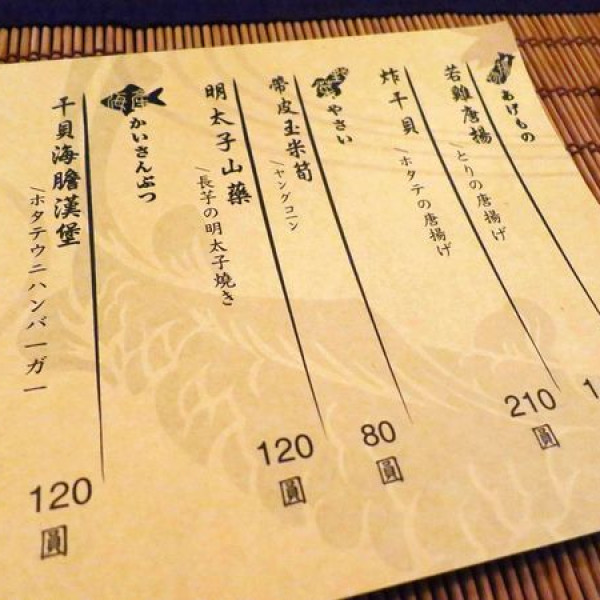 あげもの
若雞唐揚
\とりの唐揚げ
1
炸干貝
\ホタテの唐揚げ
210
圓
やさい
帶皮玉米筍
\ヤングコーン
80
圓
明太子山藥
\長芋の明太子燒き
120
圓
かいさんぶつ
干貝海膽漢堡
\ホタテウニハンバーガー
120
圓